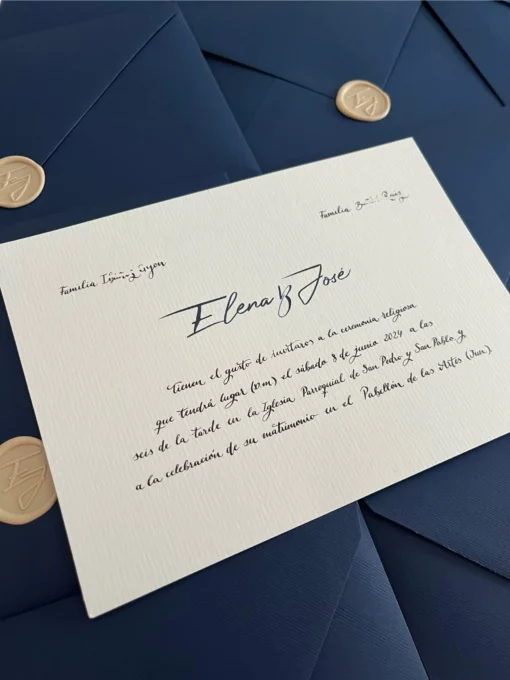 Familia
Familia
Elena y José
tienen el gusto de invitaros a la ceremonia religiosa
que tendrá lugar (D.m.) el sábado 8 de junio 2024 a las
seis de la tarde en la Iglesia Parroquial de San Pedro y San Pablo y
a la celebración de su matrimonio en el Pabellón de las Artes (Jun)